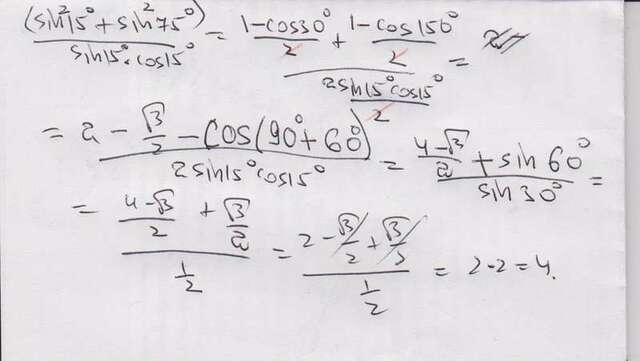 (sin²15° + sin²75°) / (sin15°·cos15°) = ((1-cos30°)/2 + (1-cos150°)/2) / (2sin15°cos15°/2) =
= (2 - √3/2 - cos(90°+60°)) / (2sin15°cos15°) = ((4-√3)/2 + sin60°) / (sin30°) =
= ((4-√3)/2 + √3/2) / (1/2) = (2 - √3/2 + √3/2) / (1/2) = 2·2 = 4.